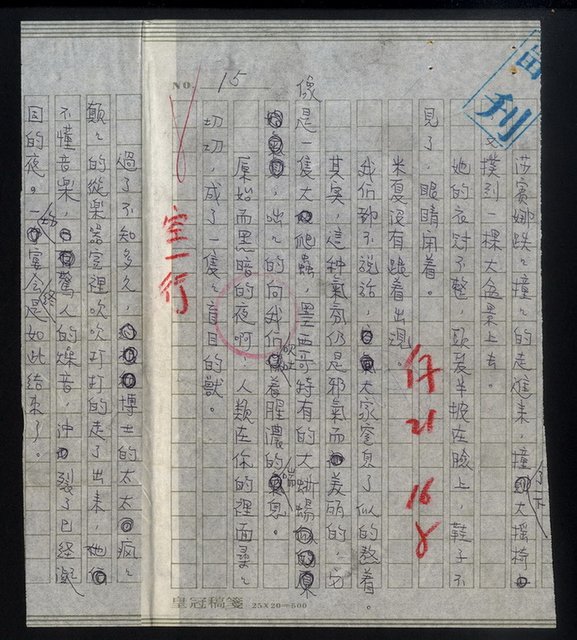 NO. 15
副刊
莎賓娜跌跌撞撞的走進來，撞了一下大搖椅，
又撲到一棵大盆景上去。
她的衣衫不整，頭髮半披在臉上，鞋子不
見了，眼睛閉着。
米夏沒有跟着出現。
我們都不說話，大家窒息了似的熬着。
其實，這種氣氛仍是邪氣而美麗的，它
像是一隻大爬蟲，墨西哥特有的大蜥蜴，
咄咄的向我們吹着腥濃的喘息。
原始而黑暗的夜啊，人類在你的裡面尋尋
切切，成了一隻隻盲目的獸。
空一行
過了不知多久，博士的太太瘋瘋
顛顛的從樂器室裡吹吹打打的走了出來，她
不懂音樂，驚人的燥音，沖裂了已經凝
固的夜。一場宴會是如此結束了。
仿 21 16
皇冠稿箋 25×20=500